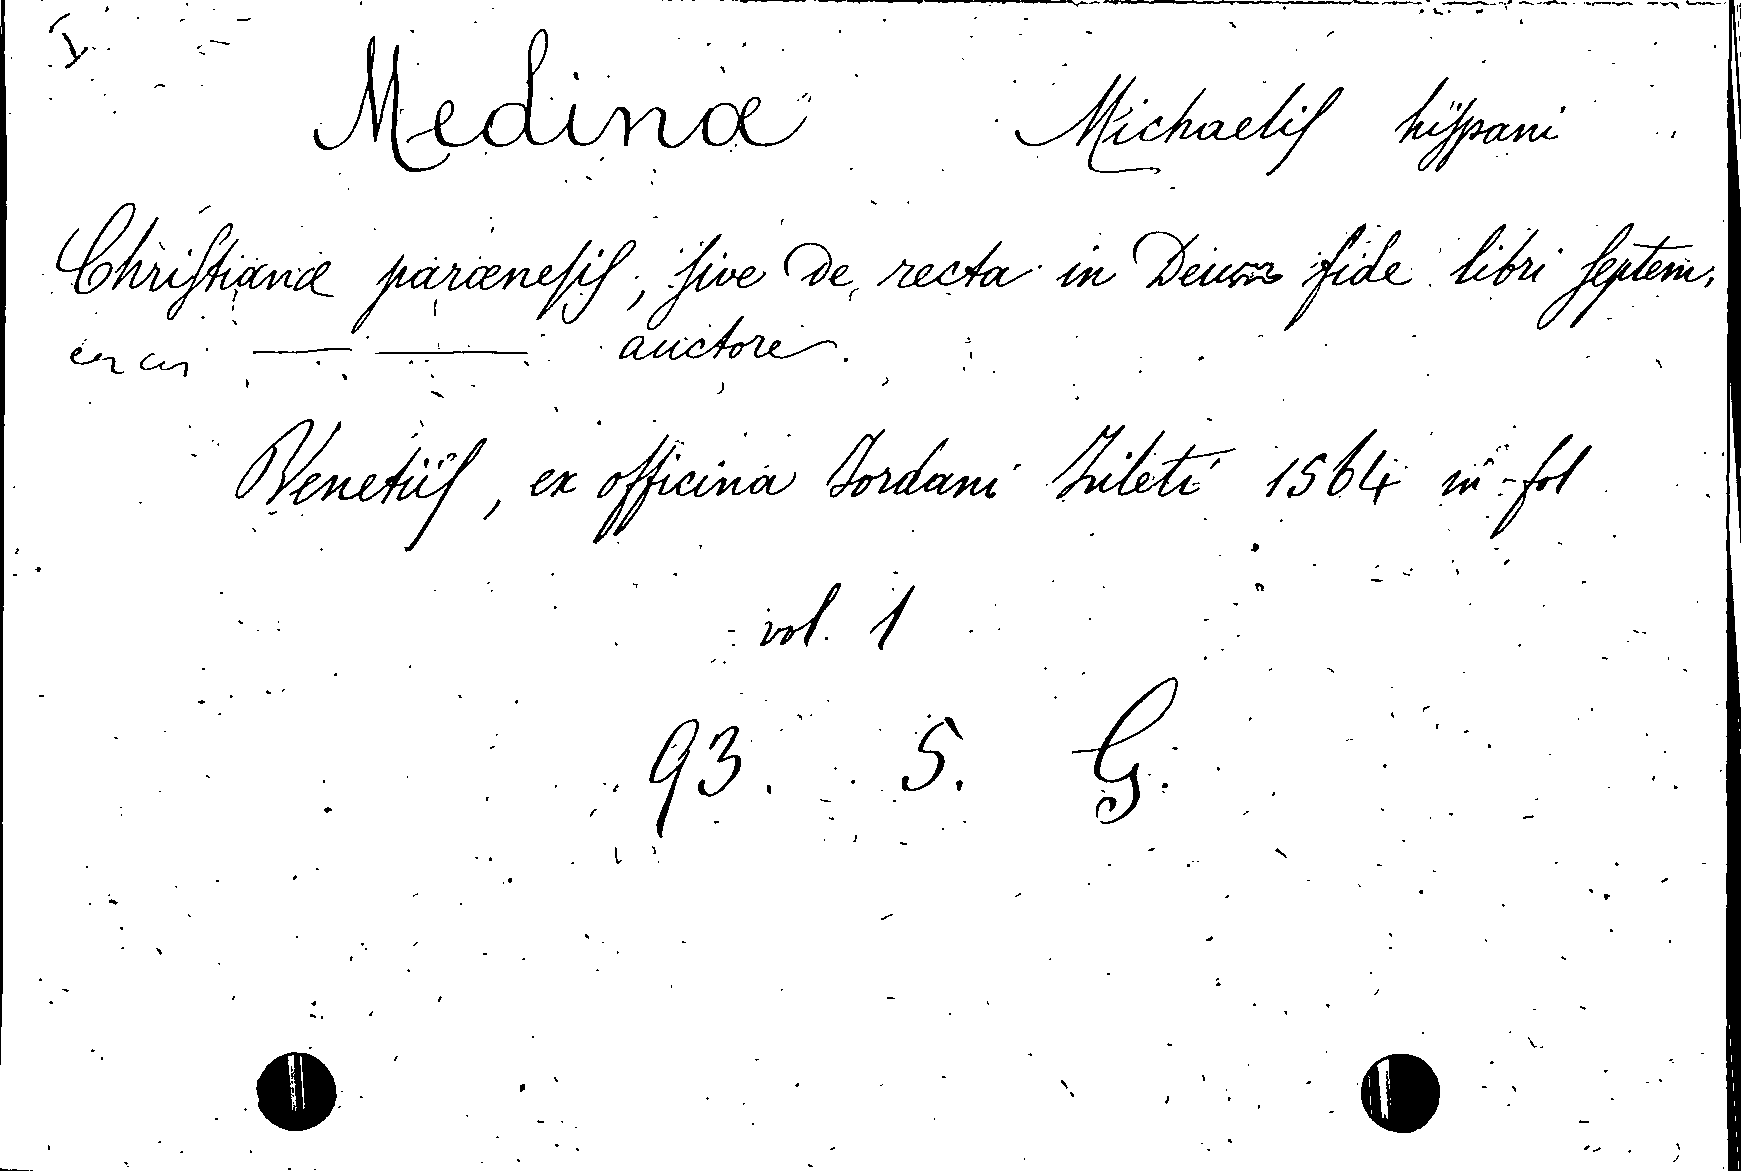 I
Medinæ Michaelis hispani
Christianæ parænesis, sive de recta in Deum fide libri septem,
auctore.
Venetiis, ex officina Jordani Zileti 1564 in-fol
vol. 1
93. 5. G.